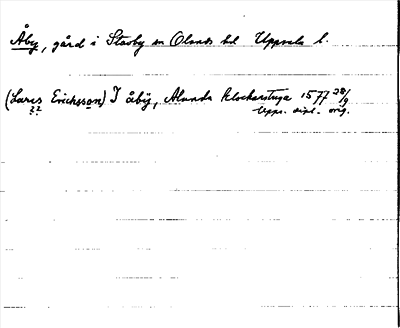 Åby, gård i Stavby sn Olands hd Uppsala l.
(Lars Ericksson) I åbÿ, Alunda klockarstuga 1577 28/9
?? Upps. dipl. orig.